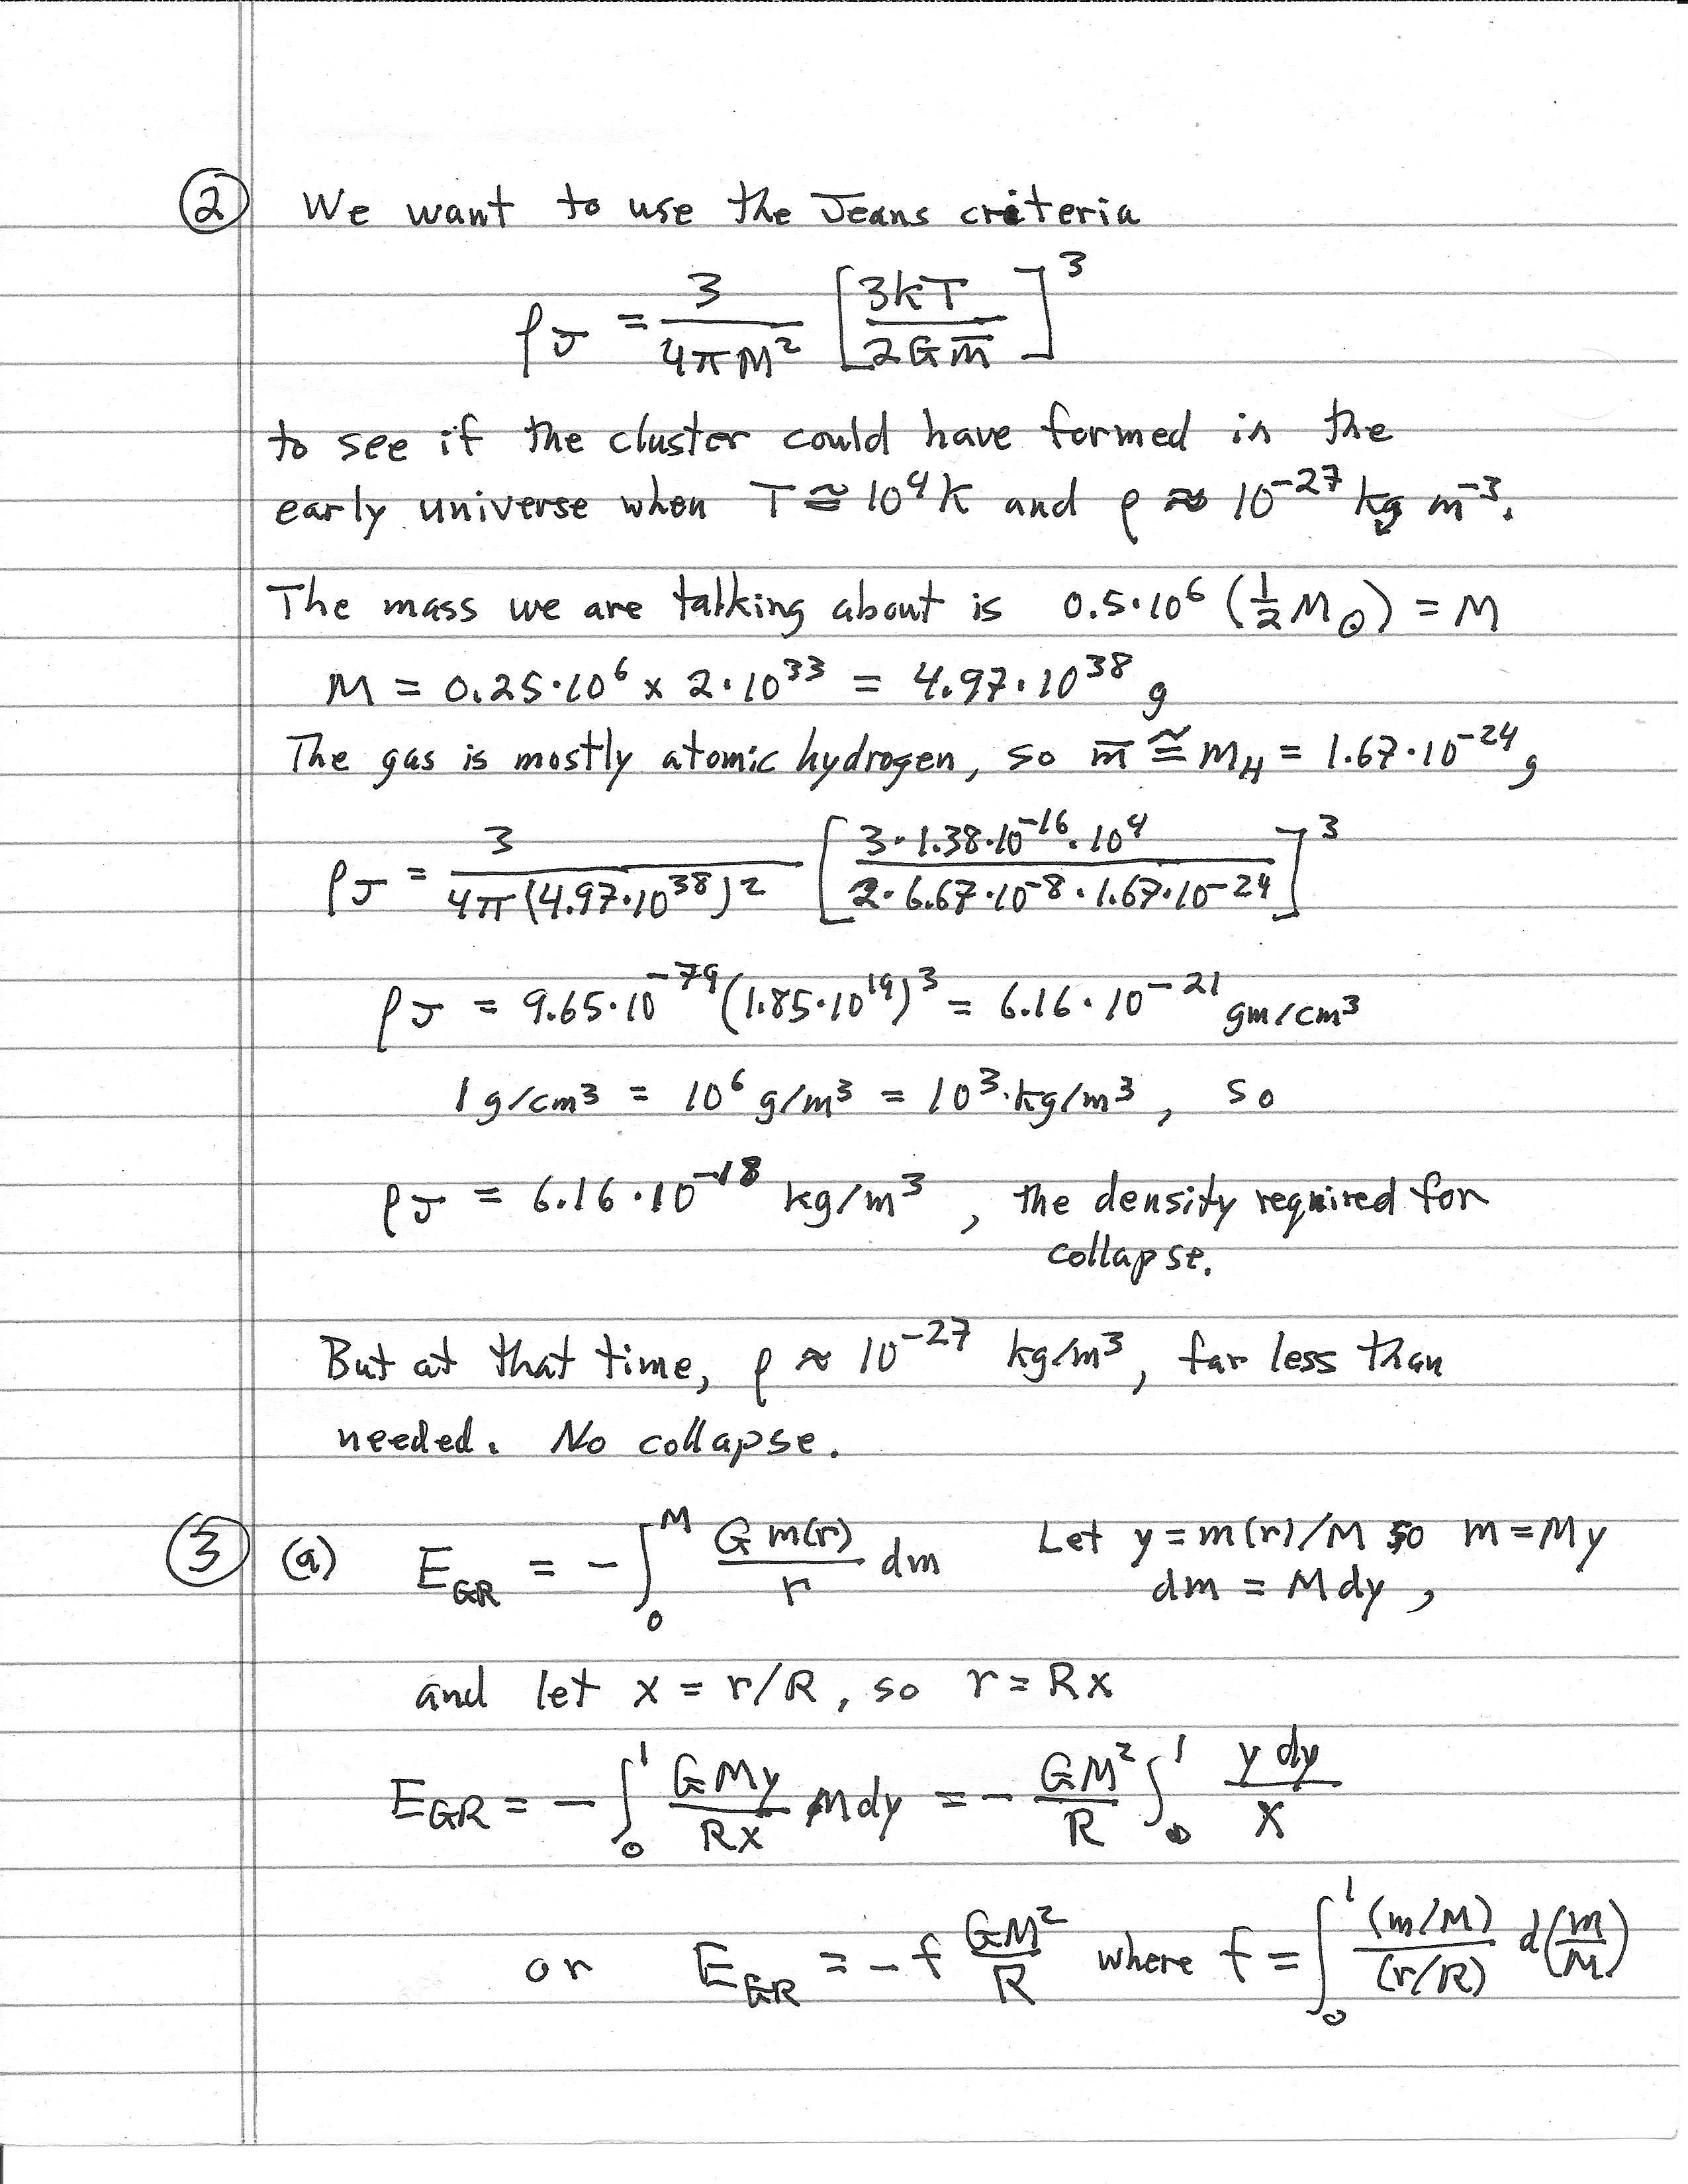 ② We want to use the Jeans criteria
ρ_J = 3/(4πM²) [3kT/(2Gm̄)]³
to see if the cluster could have formed in the
early universe when T ≅ 10⁴ K and ρ ≈ 10⁻²⁷ kg m⁻³.
The mass we are talking about is 0.5·10⁶ (½ M⊙) = M
M = 0.25·10⁶ x 2·10³³ = 4.97·10³⁸ g
The gas is mostly atomic hydrogen, so m̄ ≅ m_H = 1.67·10⁻²⁴ g
ρ_J = 3/(4π(4.97·10³⁸)²) [3·1.38·10⁻¹⁶·10⁴/(2·6.67·10⁻⁸·1.67·10⁻²⁴)]³
ρ_J = 9.65·10⁻⁷⁹ (1.85·10¹⁹)³ = 6.16·10⁻²¹ gm/cm³
1 g/cm³ = 10⁶ g/m³ = 10³·kg/m³, so
ρ_J = 6.16·10⁻¹⁸ kg/m³, the density required for
collapse.
But at that time, ρ ≈ 10⁻²⁷ kg/m³, far less than
needed. No collapse.
③ (a) E_GR = -∫₀ᴹ G m(r)/r dm Let y = m(r)/M so m = My
dm = M dy,
and let x = r/R, so r = Rx
E_GR = -∫₀¹ GMy/(Rx) M dy = -GM²/R ∫₀¹ y dy/x
or E_GR = -f GM²/R where f = ∫₀¹ (m/M)/(r/R) d(m/M)